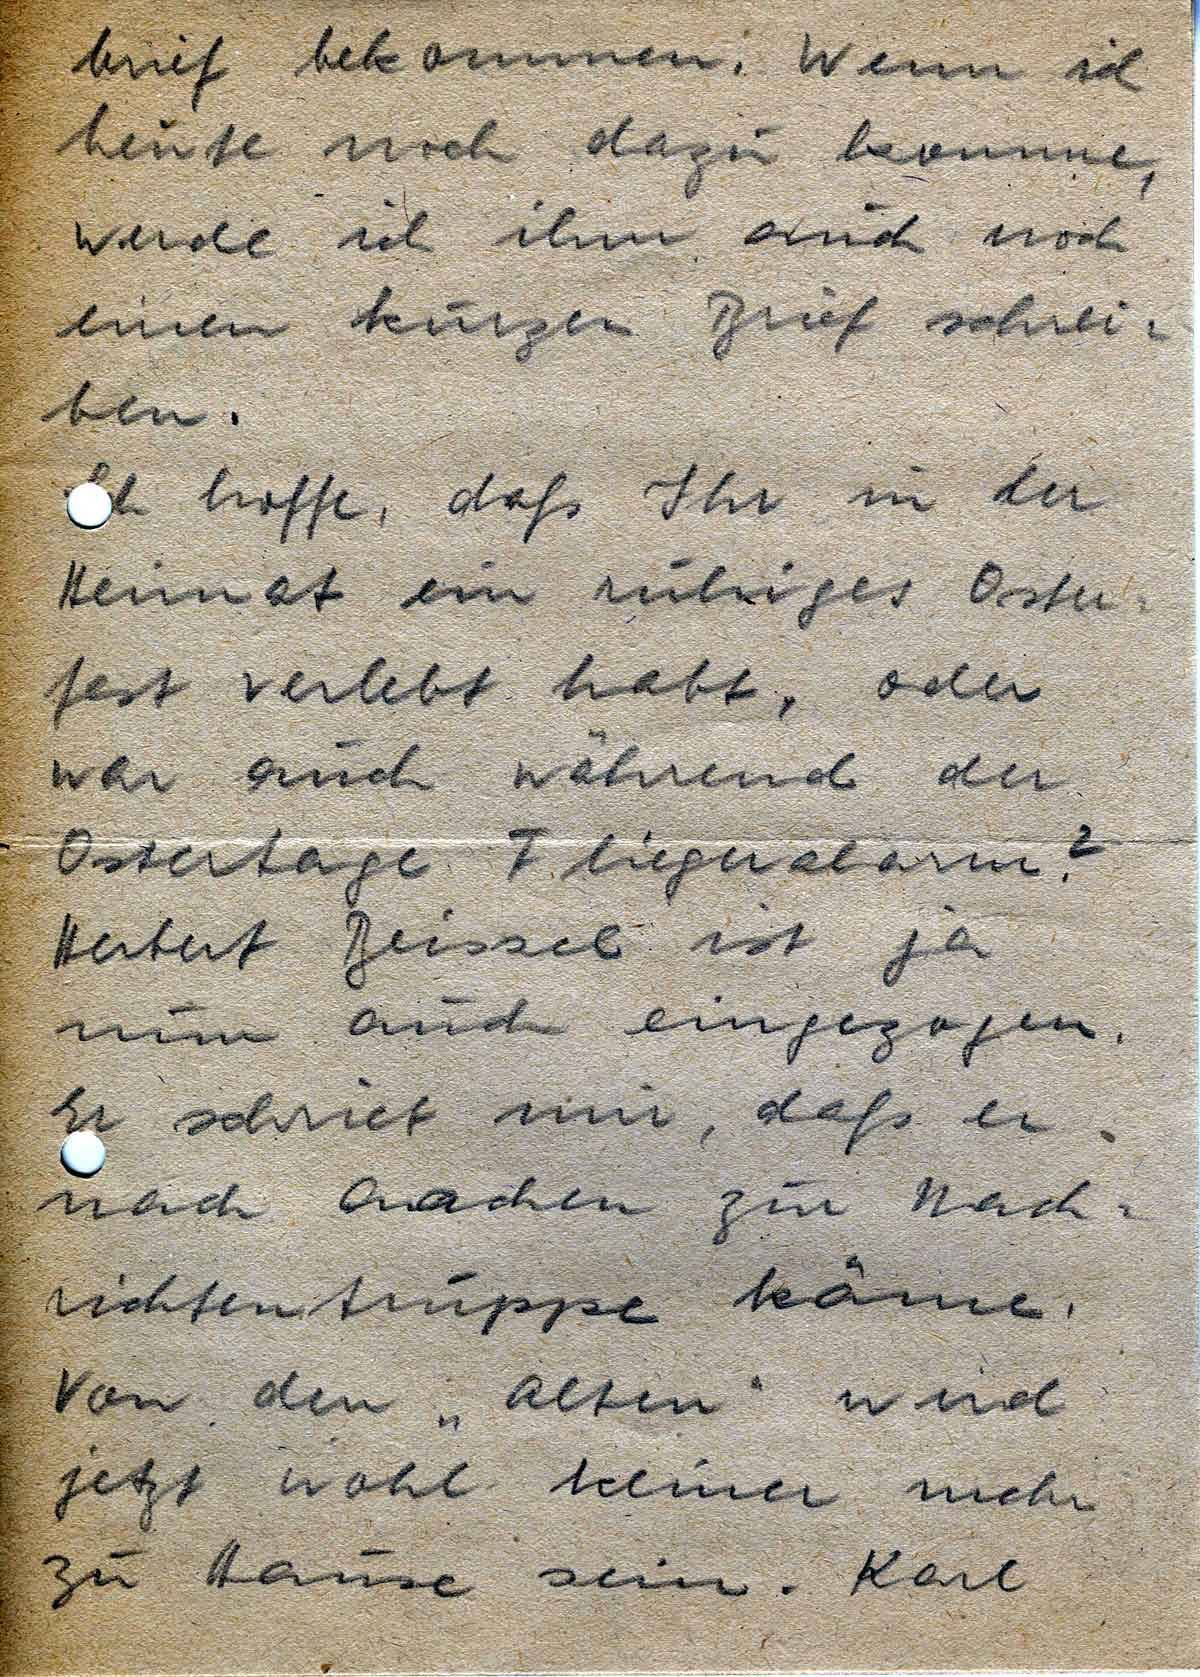 brief bekommen. Wenn ich
heute noch dazu komme,
werde ich ihm auch noch
einen kurzen Brief schrei-
ben.
Ich hoffe, daß Ihr in der
Heimat ein ruhiges Oster-
fest verlebt habt, oder
war auch während der
Ostertage Fliegeralarm?
Herbert Beissel ist ja
nun auch eingezogen.
Er schrieb mir, daß er
nach Aachen zur Nach-
richtentruppe käme.
Von den „Alten“ wird
jetzt wohl keiner mehr
zu Hause sein. Karl